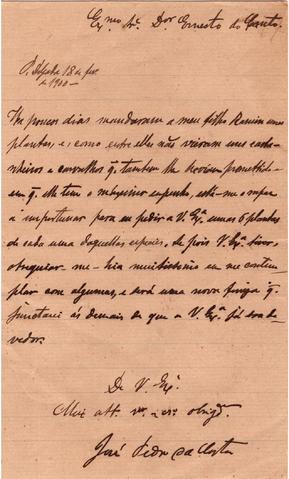 Exmo Sr. Dor Ernesto do Canto
P. Delgada 18 de
de 1900
Ha poucos dias mandaram a meu filho Ramiro umas
plantas, e, como entre elles não vieram uns casta-
nheiros e carvalhos q. tambem lhe haviam promettido
em q. elle tem o maximo empenho, está-me a
a importunar para eu pedir a V. Exa umas 6 plantas
de cada uma daquellas especies,
obsequiar-me-hia muitissimo em me contem-
plar com algumas, e será uma nova fineza q.
juntarei ás demais de que a V. Exa já sou de-
vedor.
De V. Exa
Mui att. vor e cro obrigo.
José Pedro da Costa